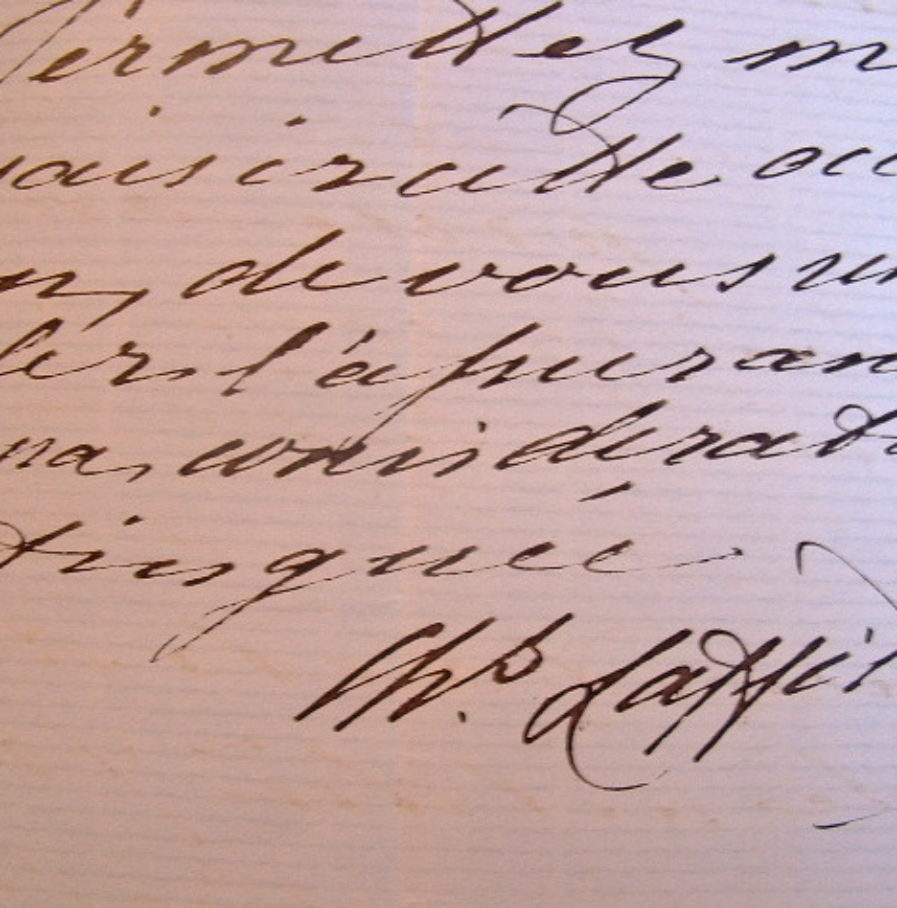 Permettez m
saisir cette oc
n, de vous r
ler l'assuran
ma considérat
tinguée
Ch.s Laffit